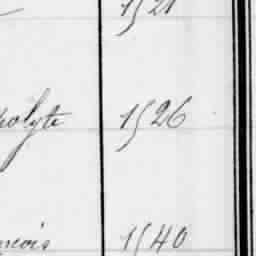 1521
polyte 1526
nçois 1540